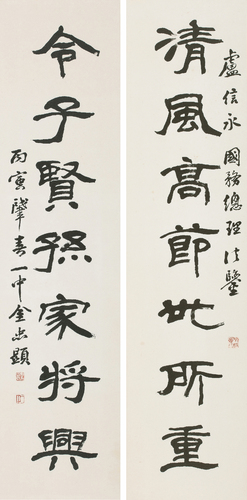 盧信永國務總理法鑒
清風高節世所重
令子賢孫家將興
丙寅肇春一中金忠顯